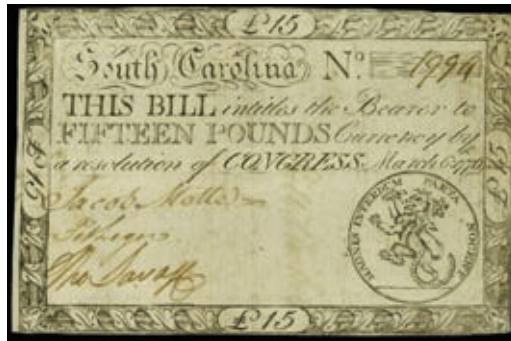 £15
South Carolina No. 1994
THIS BILL intitles the Bearer to
FIFTEEN POUNDS Currency by
a resolution of CONGRESS March 6 1776
Jacob Motte
Tho Savage
MAGNIS INTERDUM PARVA NOCENT
£15
£15
£15